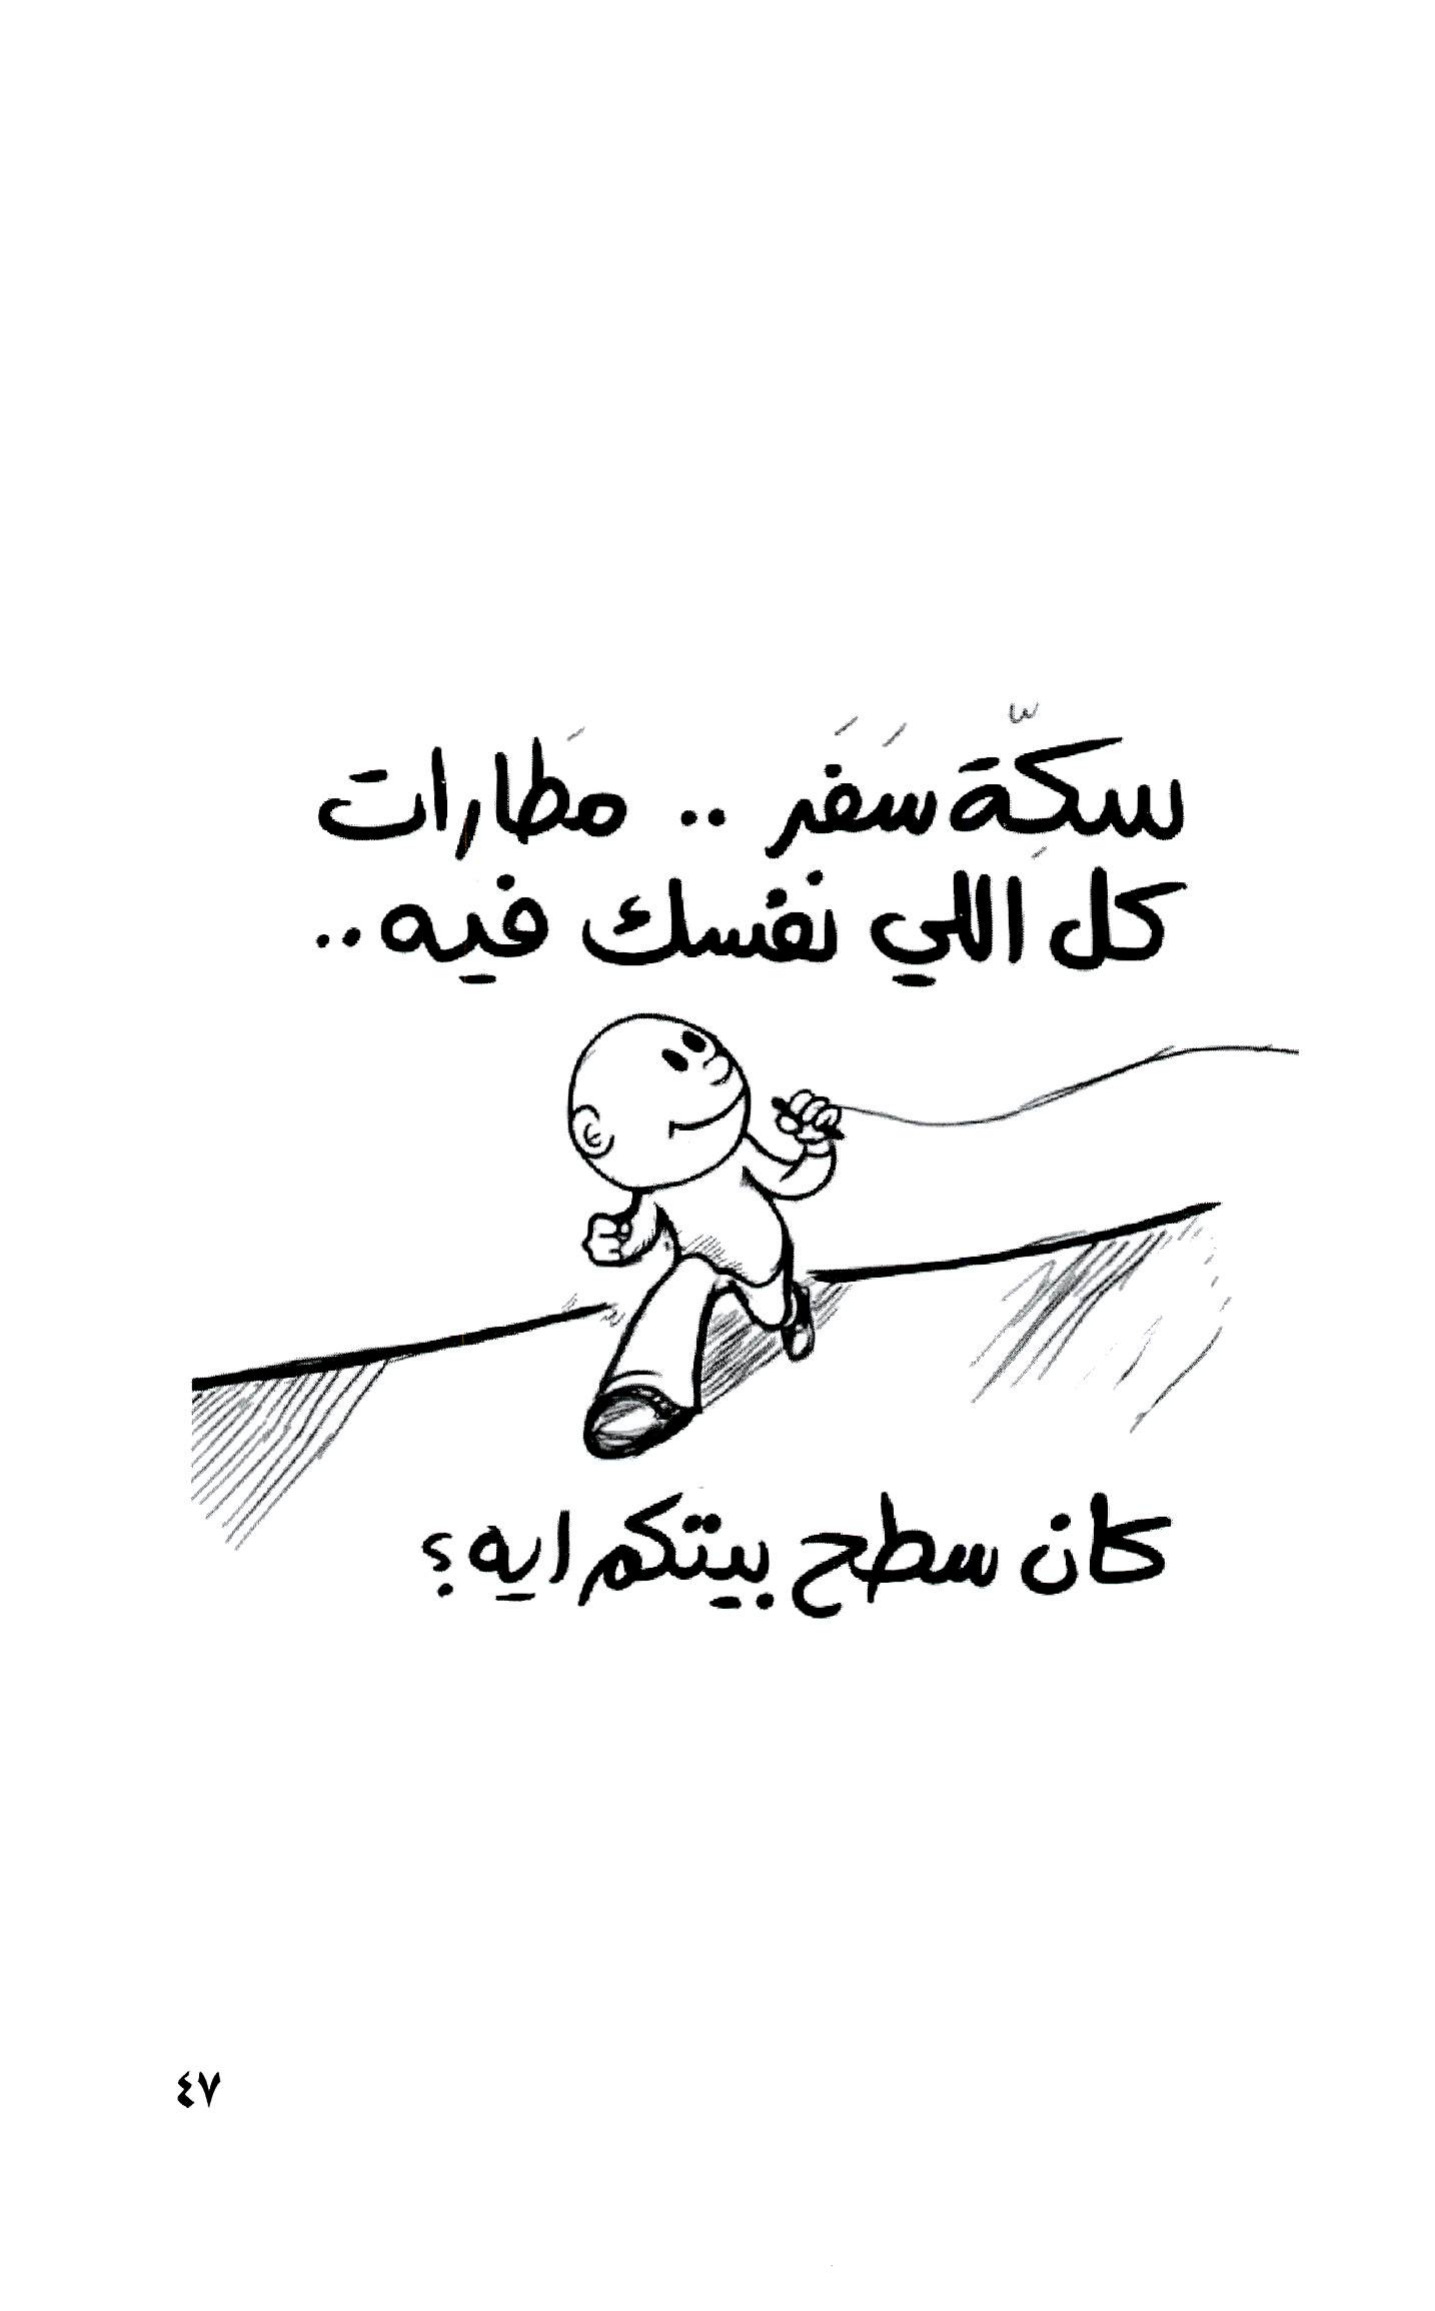 سكِّة سَفَر .. مَطارات
كل اللي نفسك فيه..
كان سطح بيتكم ايه؟
٤٧